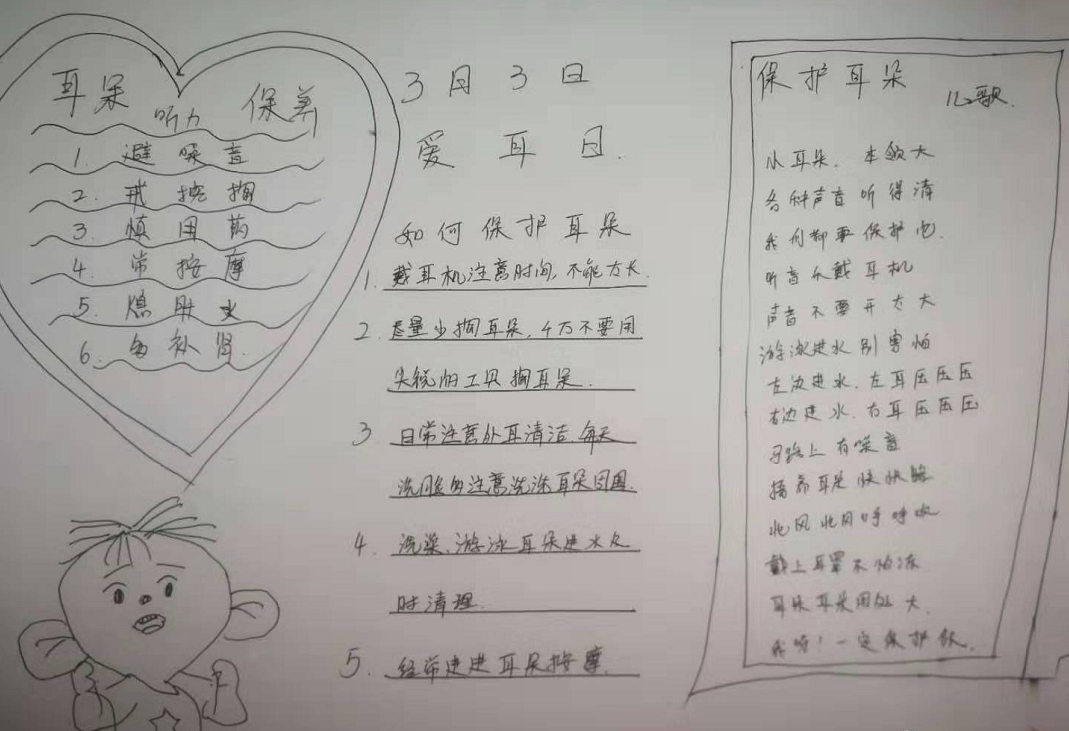 耳朵 听力 保养
1. 避噪音
2. 戒挖掏
3. 慎用药
4. 常按摩
5. 熄肝火
6. 勿补肾.
3月3日
爱耳日.
如何保护耳朵
1. 戴耳机注意时间,不能太长.
2. 尽量少掏耳朵,千万不要用
尖锐的工具掏耳朵.
3 日常注意外耳清洁.每天
洗脸的注意洗洗耳朵周围.
4. 洗澡、游泳耳朵进水及
时清理.
5. 经常进进耳朵按摩.
保护耳朵
儿歌.
小耳朵.本领大
各种声音听得清
我们都要保护它.
听音乐戴耳机
声音不要开太大
游泳进水别害怕
左边进水.左耳压压压
右边进水.右耳压压压
马路上有噪音
捂着耳朵快快躲
北风北风呼呼吹
戴上耳罩不怕冻
耳朵耳朵用处大.
我呀!一定保护你.